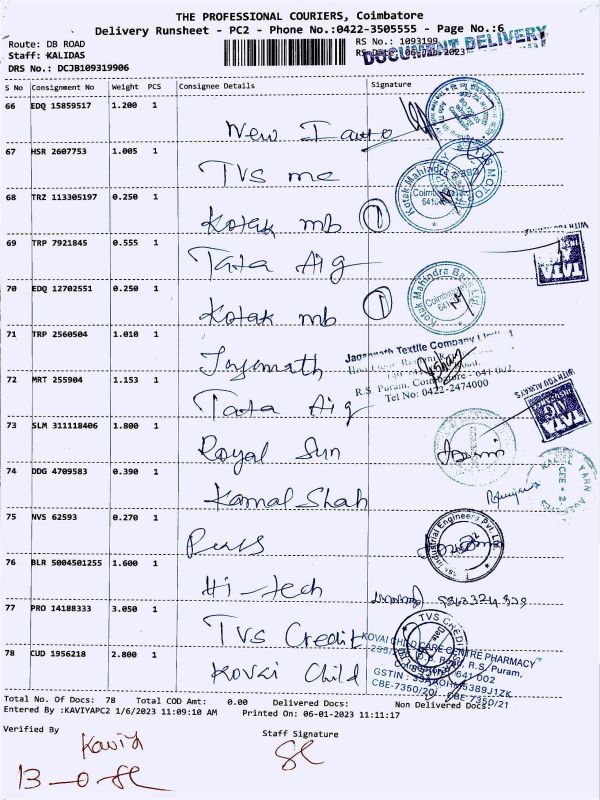 THE PROFESSIONAL COURIERS, Coimbatore
Delivery Runsheet - PC2 - Phone No.:0422-3505555 - Page No.:6
Route: DB ROAD
Staff: KALIDAS
DRS No.: DCJB109319906
RS No.: 1093199
RS Date: 06-Jan-2023
DOCUMENT DELIVERY
S No Consignment No Weight PCS Consignee Details Signature
66 EDQ 15859517 1.200 1
New I auto
67 HSR 2607753 1.005 1
TVS mc
68 TRZ 113305197 0.250 1
Kotak mb 1
Kotak Mahindra
Coimbatore
69 TRP 7921845 0.555 1
Tata Aig
WITH YOU
TATA
70 EDQ 12702551 0.250 1
Kotak mb 1
Kotak Mahindra Bank Ltd
Coimbatore
71 TRP 2560504 1.010 1
Jagannath Textile Company Limited
R.S. Puram, Coimbatore - 641 002.
Tel No: 0422-2474000
72 MRT 255904 1.153 1
Tata Aig
WITH YOU ALWAYS
TATA
AIG
73 SLM 311118406 1.800 1
Royal Sun
74 DDG 4709583 0.390 1
Kamal Shah
YARN
75 NVS 62593 0.270 1
Industrial Engineers Pvt. Ltd.
76 BLR 5004501255 1.600 1
Hi-tech
77 PRO 14188333 3.050 1
TVS Credit
TVS CREDIT
78 CUD 1956218 2.800 1
Kovai Child
KOVAI CHILD CARE CENTRE PHARMACY
D.B. Road, R.S. Puram,
Coimbatore - 641 002
CBE-7350/20 CBE 7350/21
Total No. Of Docs: 78 Total COD Amt: 0.00 Delivered Docs: Non Delivered Docs:
Entered By :KAVIYAPC2 1/6/2023 11:09:10 AM Printed On: 06-01-2023 11:11:17
Verified By
Staff Signature
Kaviya